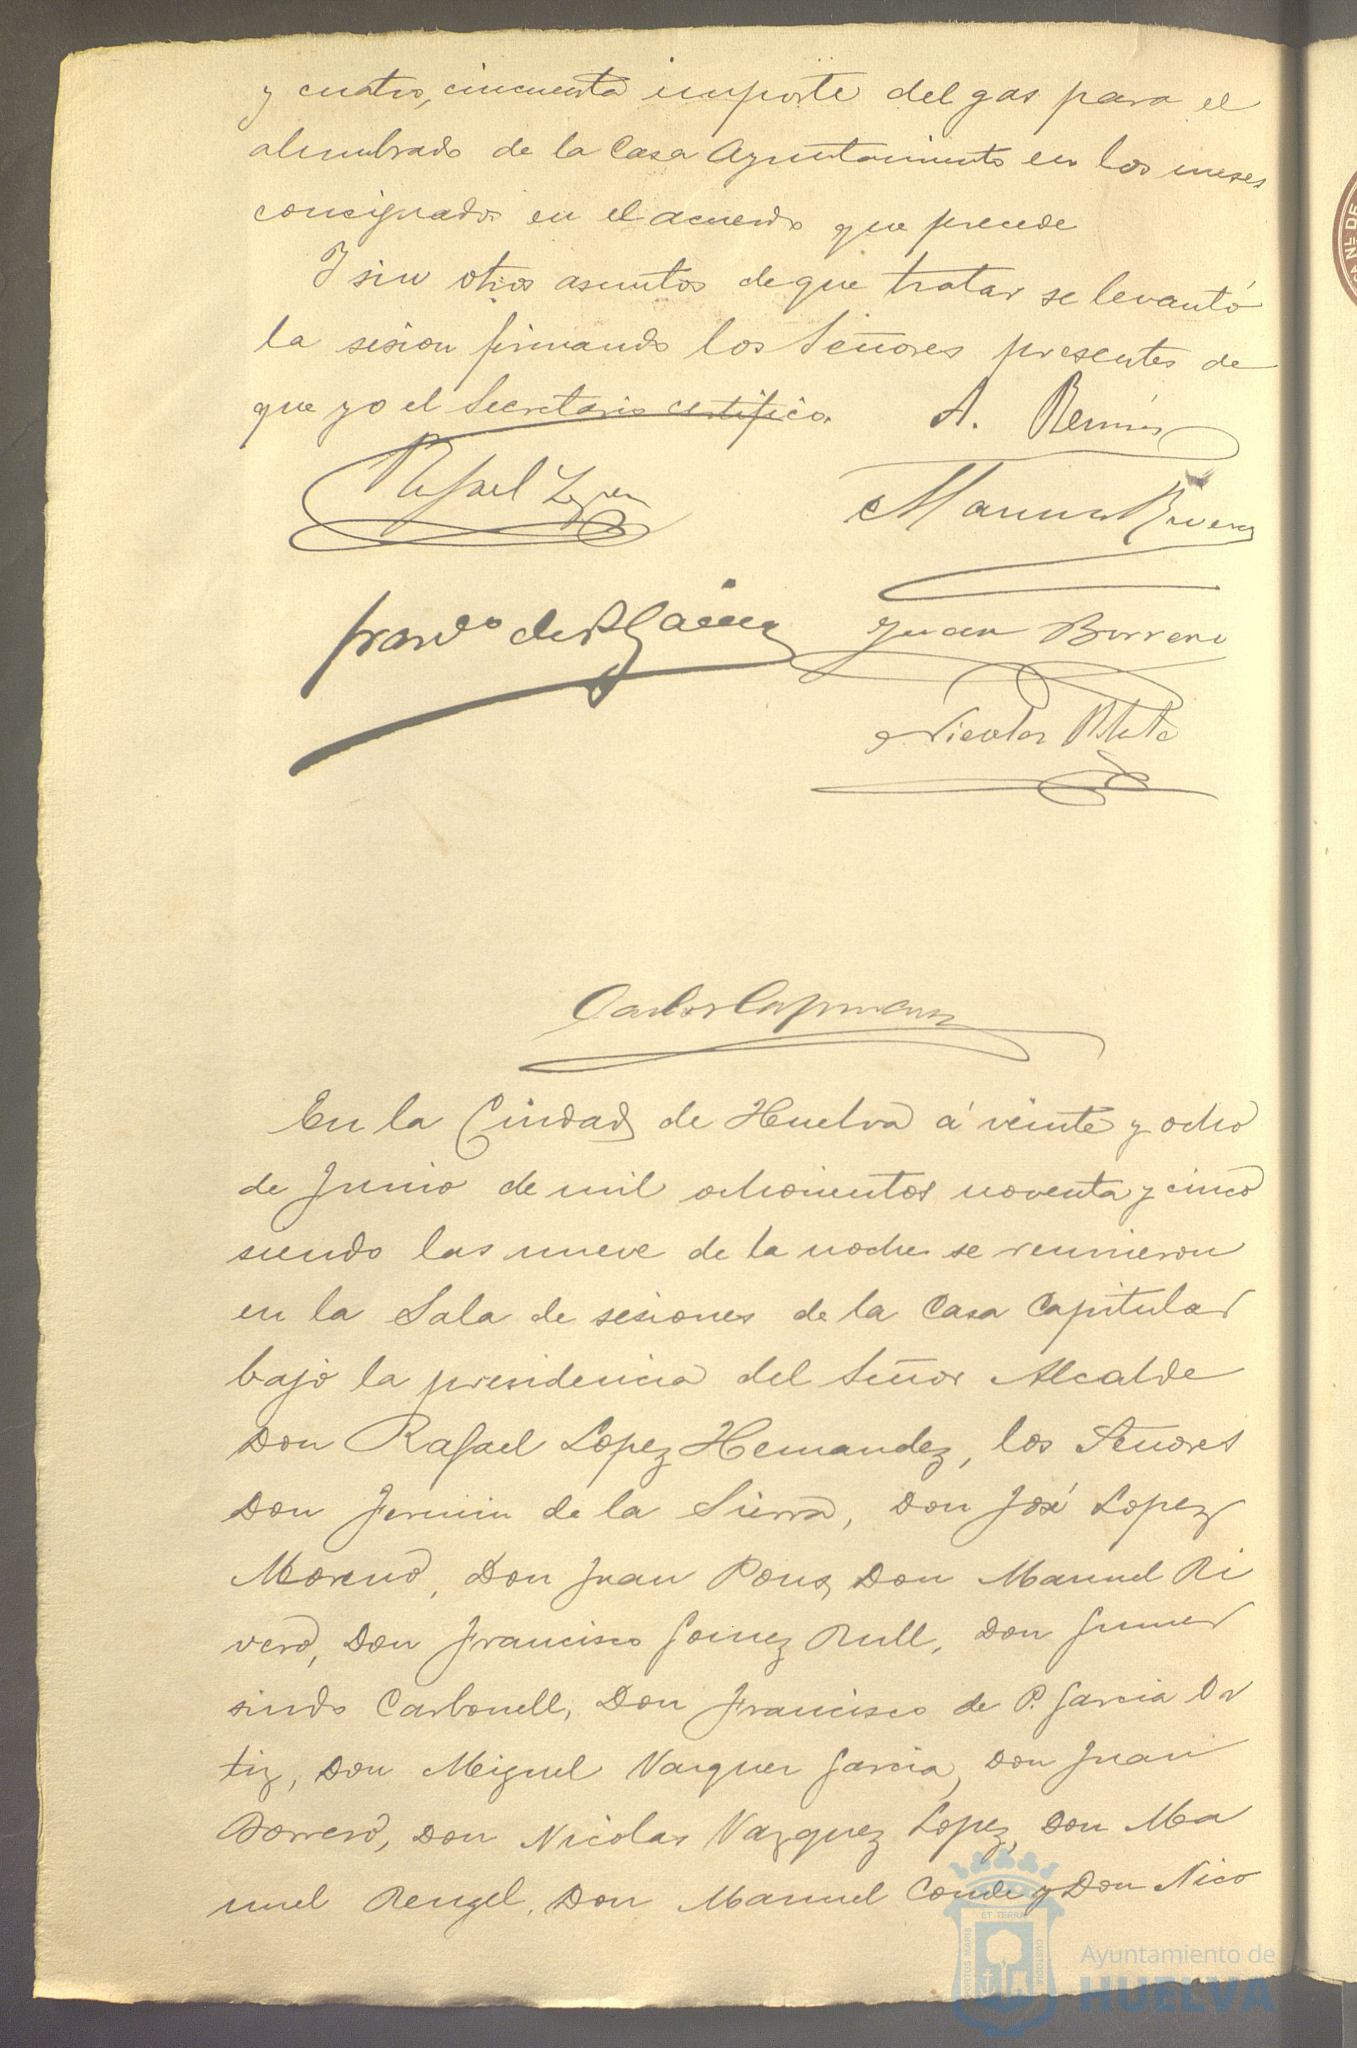 y cuatro, cincuenta importe del gas para el
alumbrado de la Casa Ayuntamiento en los meses
consignados en el acuerdo que precede
Y sin otros asuntos de que tratar se levantó
la sesion firmando los Señores presentes de
que yo el Secretario certifico.
A.
Rafael
Manuel Rivero
de P. Garcia
Juan Borrero
Nicolas
Carlos
En la Ciudad de Huelva á veinte y ocho
de Junio de mil ochocientos noventa y cinco
siendo las nueve de la noche se reunieron
en la Sala de sesiones de la Casa Capitular
bajo la presidencia del Señor Alcalde
Don Rafael Lopez Hernandez, los Señores
Don Fermin de la Sierra, Don José Lopez
Moreno, Don Juan Pons, Don Manuel Ri
vero, Don Francisco Gomez Rull, Don Gumer
sindo Carbonell, Don Francisco de P. Garcia Or
tiz, Don Miguel Vazquez Garcia, Don Juan
Borrero, Don Nicolas Vazquez Lopez, Don Ma
nuel Rengel, Don Manuel Conde y Don Nico
PORTUS MARIS ET TERRAE CUSTODIA
Ayuntamiento de
HUELVA